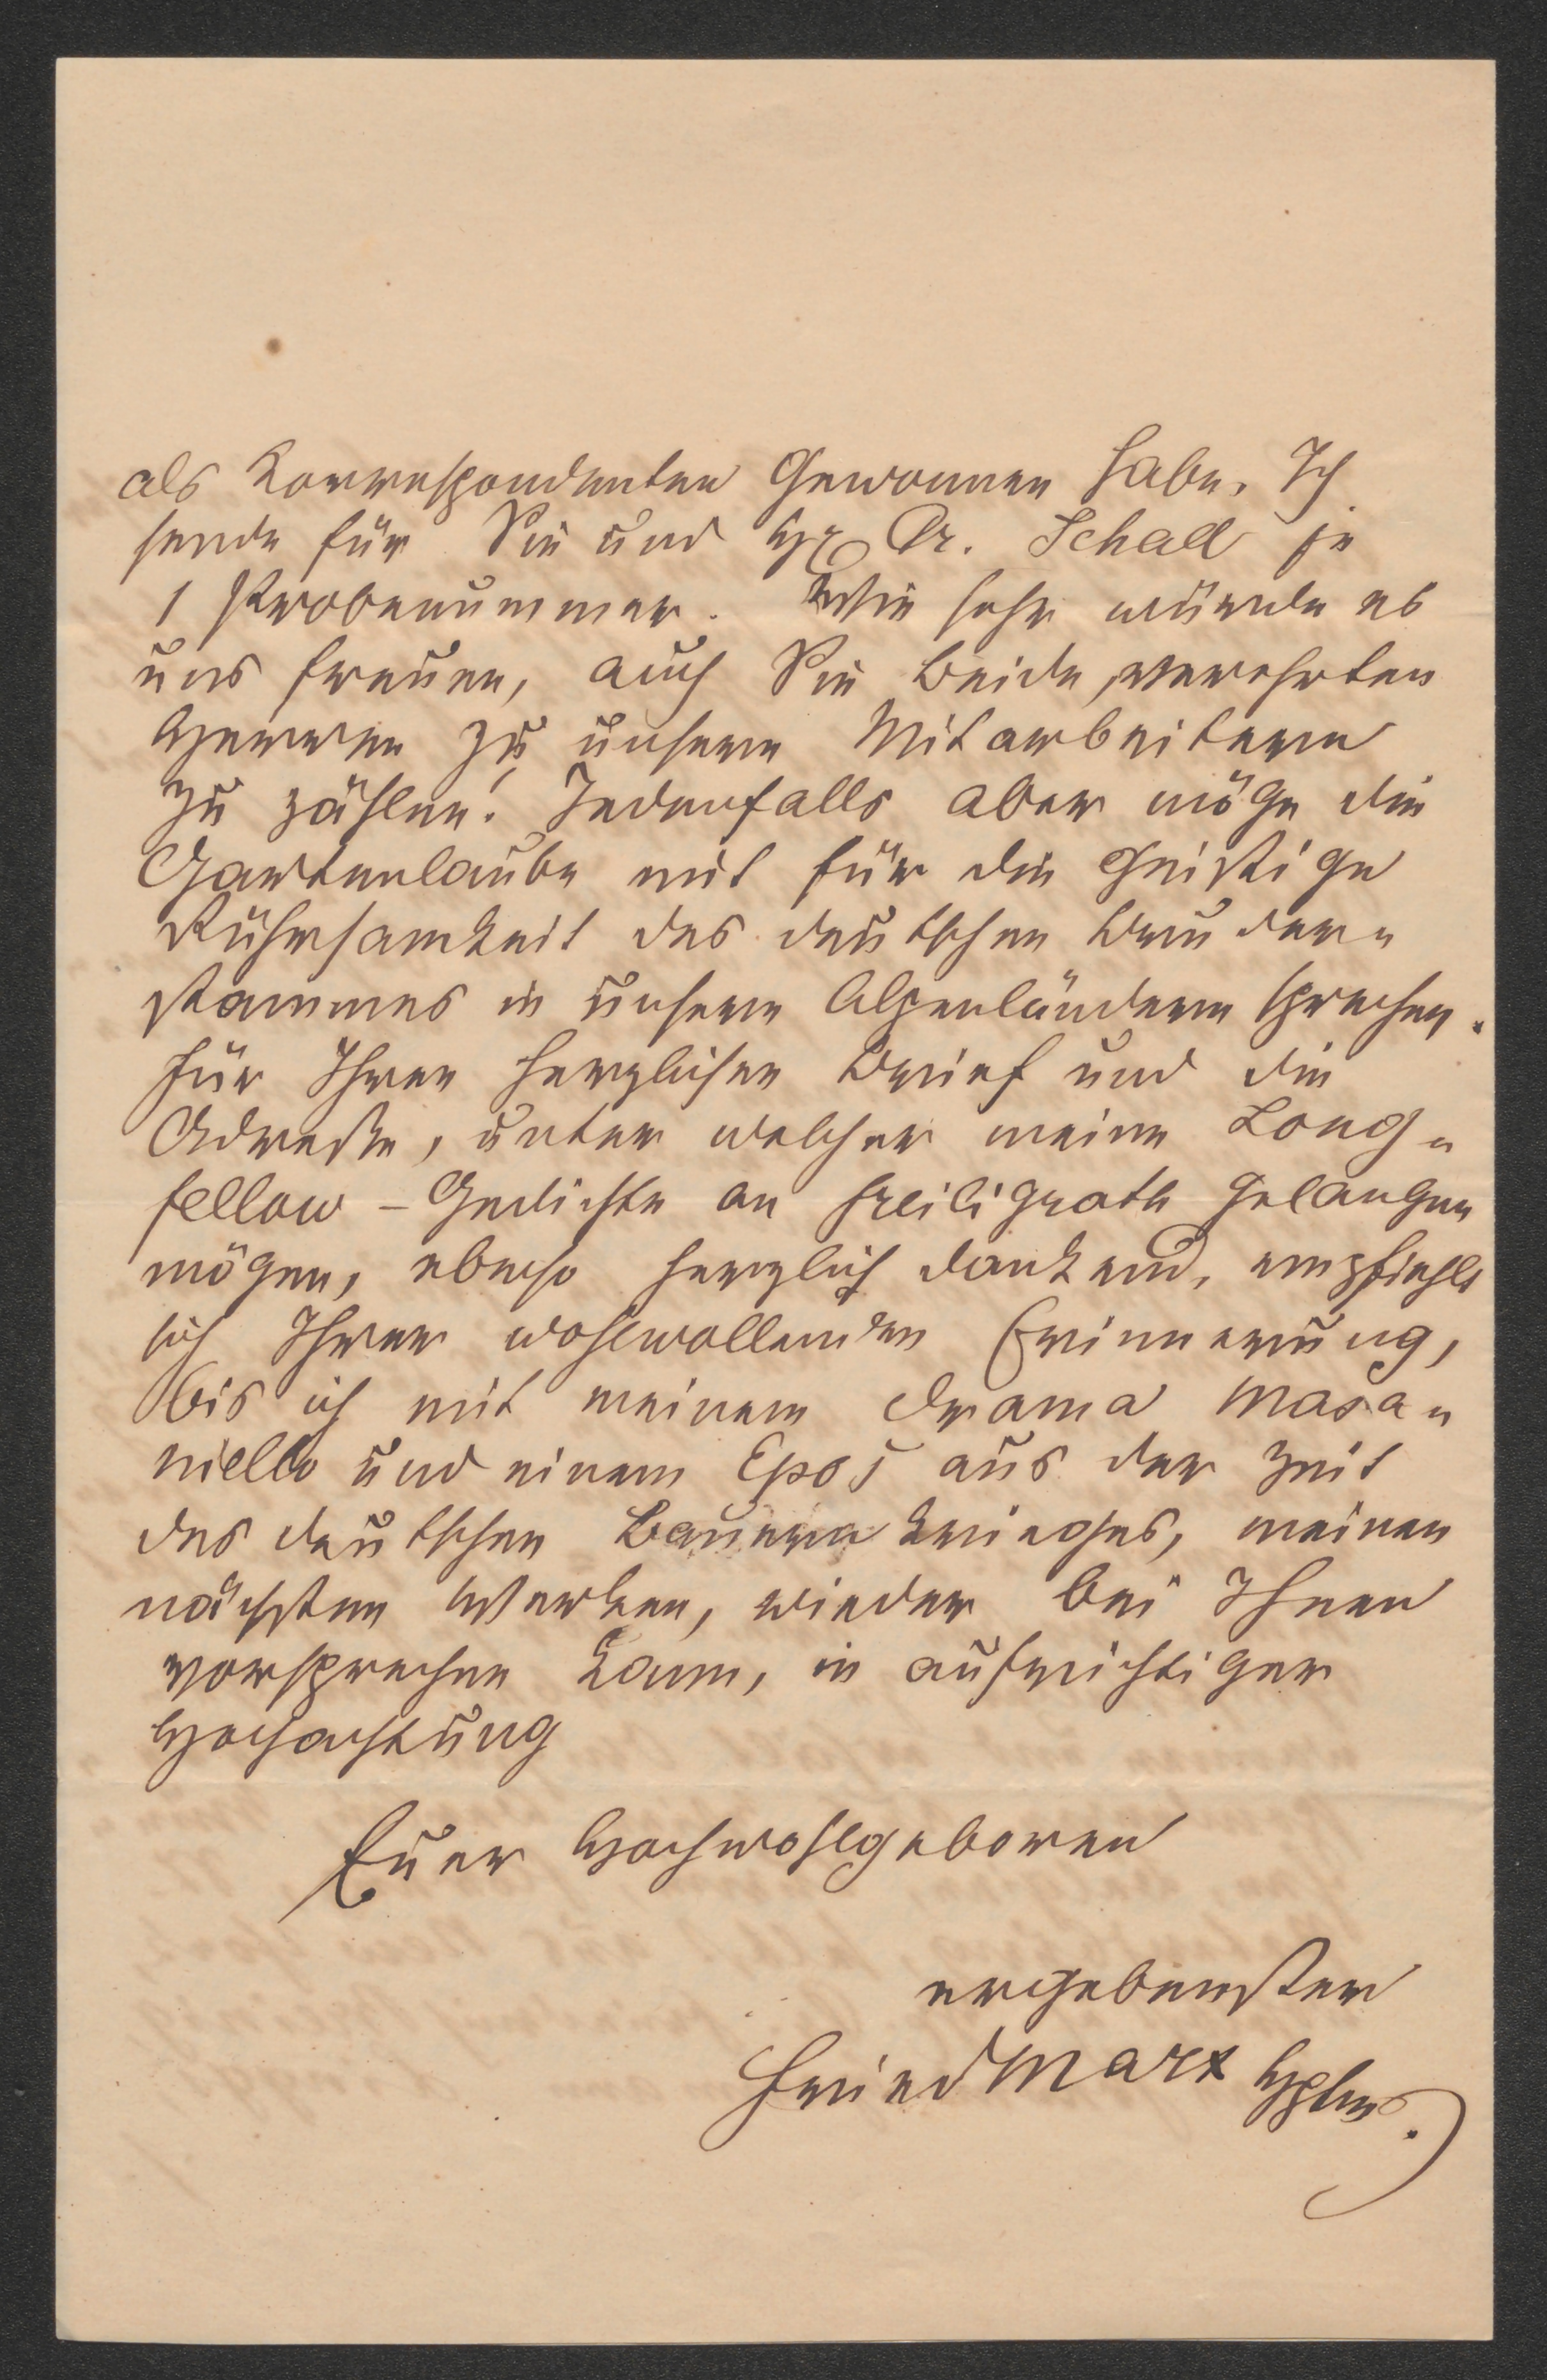 als Korrespondenten gewonnen habe. Ich
sende für Sie und Hr Dr. Schad je
1 Probenummer. Wie sehr würde es
uns freuen, auch Sie beide, verehrten
Herren zu unsern Mitarbeitern
zu zählen! Jedenfalls aber möge die
Gartenlaube mit für die geistige
Rührsamkeit des deutschen Bruder-
stammes in unsern Alpenländern sprechen.
Für Ihren herzlichen Brief und die
Adreße, unter welcher meine Long-
fellow - Gedichte an Freiligrath gelangen
mögen, ebenso herzlich dankend, empfiehlt
sich Ihrer wohlwollenden Erinnerung,
bis ich mit meinem Drama Masa-
niello und einem Epos aus der Zeit
des deutschen Bauernkrieges, meinen
nächsten Werken, wieder bei Ihnen
vorsprechen kann, in aufrichtiger
Hochachtung
Euer Hochwohlgeboren
ergebenster
Fried Marx Hptm.